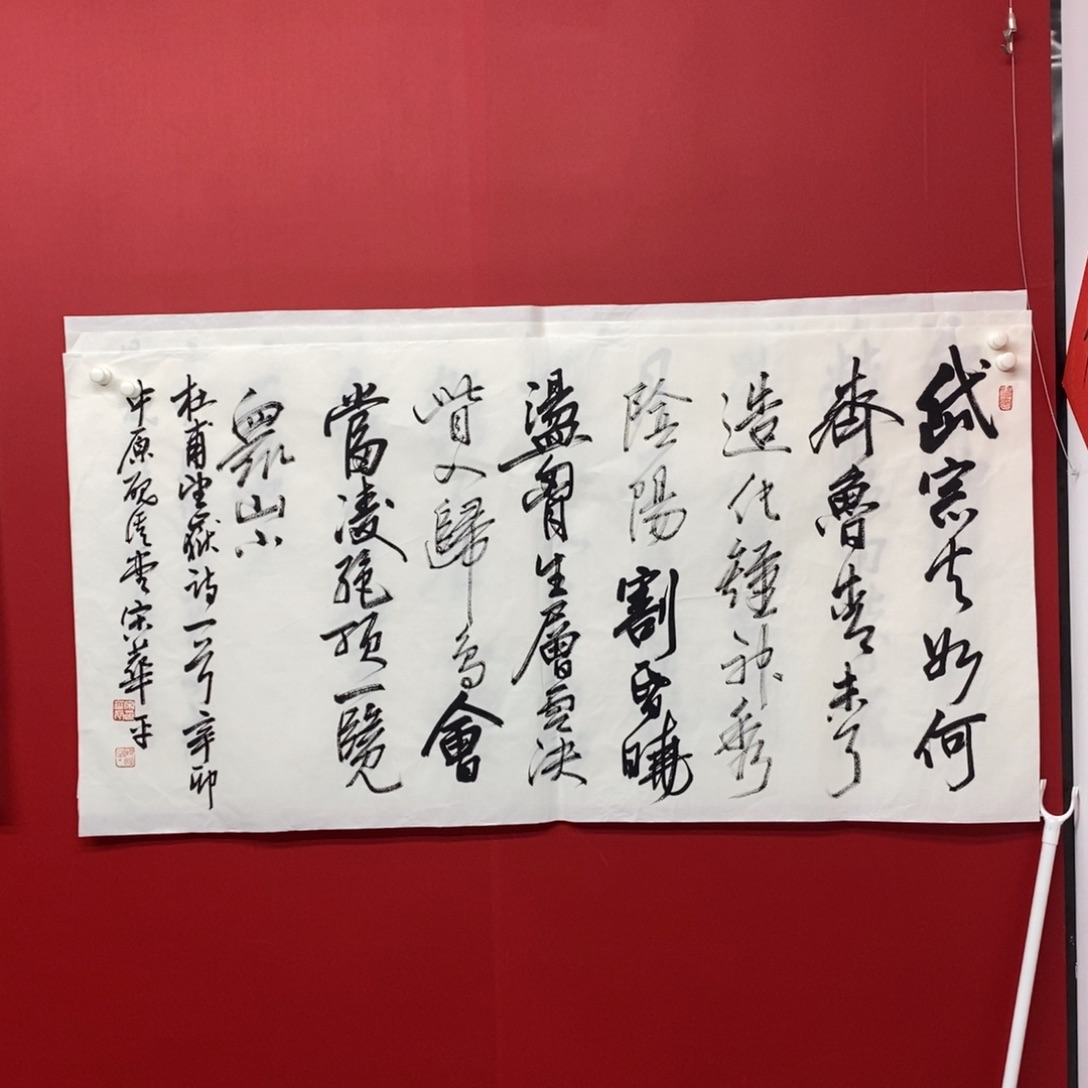 岱宗夫如何
齊魯青未了
造化鍾神秀
陰陽割昏曉
盪胷生層雲決
眥入歸鳥會
當凌絕頂一覽
衆山小
杜甫望嶽詩一首辛卯
中原硯清堂宋華平